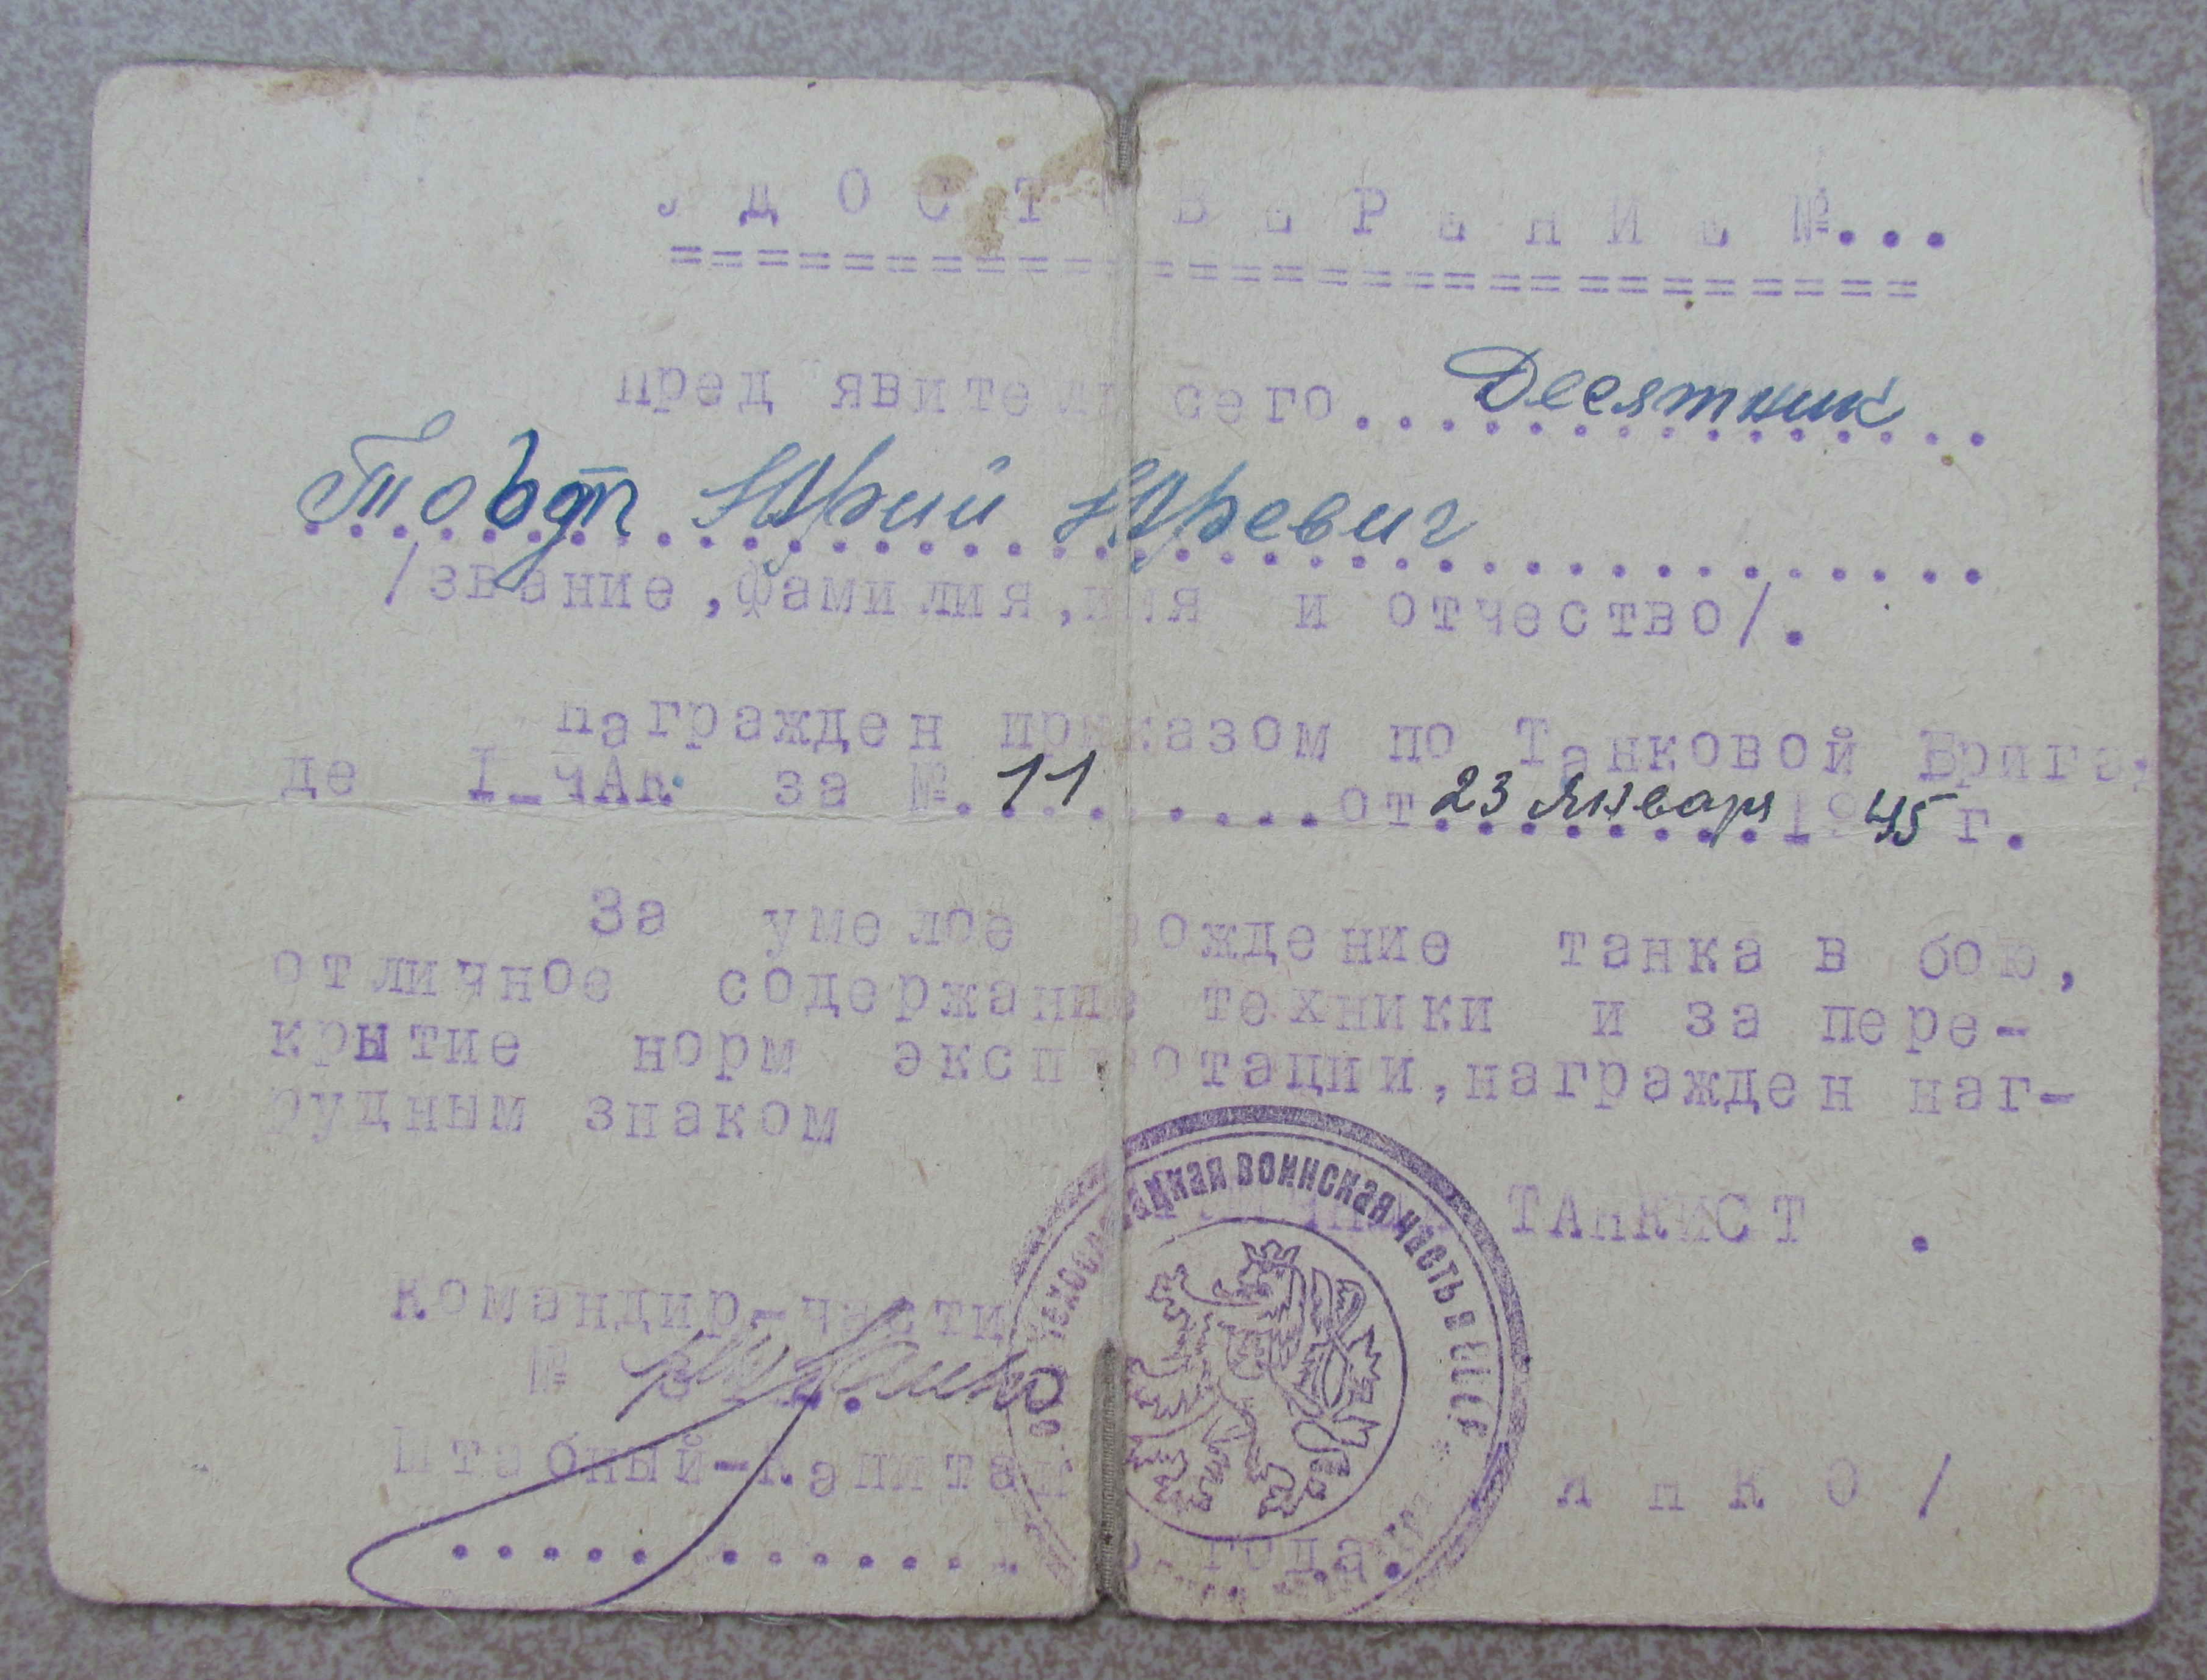 УДОСТОВЕРЕНИЕ №...
пред'явитель сего... Десятник
Юрий Юревич
/звание,фамилия,имя и отчество/.
награжден приказом по Танковой Брига-
де I-ЧАК за №. 11 от 23 Январь 1945 г.
За умелое вождение танка в бою,
отличное содержание техники и за пере-
крытие норм эксплотации,награжден наг-
рудным знаком
ТАНКИСТ .
Командир-части
№
Штабный-Капитан
АНКО/
года.
Чехословацкая воинская часть в СССР